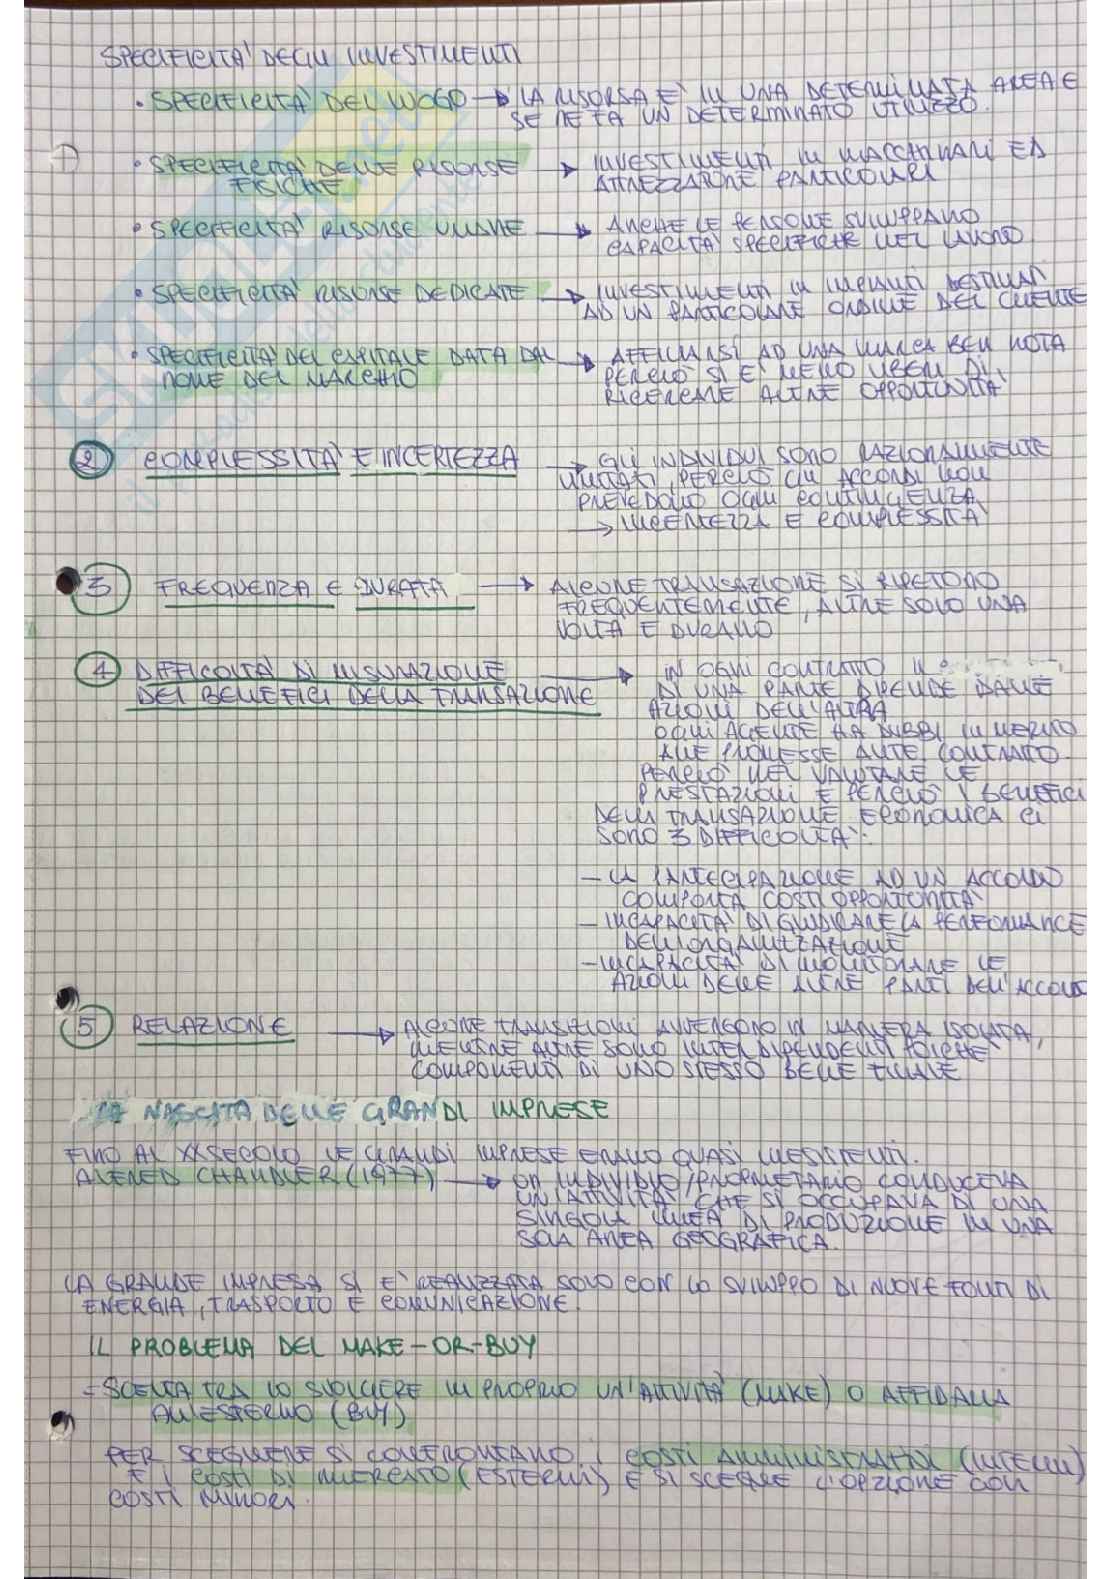 SPECIFICITA' DEGLI INVESTIMENTI
• SPECIFICITA' DEL LUOGO → LA RISORSA E' IN UNA DETERMINATA AREA E
SE NE FA UN DETERMINATO UTILIZZO.
1 • SPECIFICITA' DELLE RISORSE → INVESTIMENTI IN MACCHINARI ED
FISICHE ATTREZZATURE PARTICOLARI
• SPECIFICITA' RISORSE UMANE → ANCHE LE PERSONE SVILUPPANO
CAPACITA' SPECIFICHE NEL LAVORO
• SPECIFICITA' RISORSE DEDICATE → INVESTIMENTI IN IMPIANTI DESTINATI
AD UN PARTICOLARE ORDINE DEL CLIENTE
• SPECIFICITA' DEL CAPITALE DATA DAL → AFFILIARSI AD UNA MARCA BEN NOTA
NOME DEL MARCHIO PERCIO' SI E' MENO LIBERI DI
RICERCARE ALTRE OPPORTUNITA'
2 COMPLESSITA' E INCERTEZZA → GLI INDIVIDUI SONO RAZIONALMENTE
LIMITATI, PERCIO' GLI ACCORDI NON
PREVEDONO OGNI CONTINGENZA
→ INCERTEZZA E COMPLESSITA'
3 FREQUENZA E DURATA → ALCUNE TRANSAZIONE SI RIPETONO
FREQUENTEMENTE, ALTRE SOLO UNA
VOLTA E DURANO
4 DIFFICOLTA' DI MISURAZIONE → IN OGNI CONTRATTO IL
DEI BENEFICI DELLA TRANSAZIONE DI UNA PARTE DIPENDE DALLE
AZIONI DELL'ALTRA
OGNI AGENTE HA DUBBI IN MERITO
ALLE PROMESSE ANTE CONTRATTO.
PERCIO' NEL VALUTARE LE
PRESTAZIONI E PERCIO' I BENEFICI
DELLA TRANSAZIONE ECONOMICA CI
SONO 3 DIFFICOLTA':
- LA PARTECIPAZIONE AD UN ACCORDO
COMPORTA COSTI OPPORTUNITA'
- INCAPACITA' DI GIUDICARE LA PERFOMANCE
DELL'ORGANIZZAZIONE
- INCAPACITA' DI MONITORARE LE
AZIONI DELLE ALTRE PARTI DELL'ACCORDO
5 RELAZIONE → ALCUNE TRANSIZIONI AVVENGONO IN MANIERA ISOLATA,
MENTRE ALTRE SONO INTERDIPENDENTI POICHE'
COMPONENTI DI UNO STESSO BENE FINALE
LA NASCITA DELLE GRANDI IMPRESE
FINO AL XX SECOLO LE GRANDI IMPRESE ERANO QUASI INESISTENTI.
ALFRED CHANDLER (1977) → UN INDIVIDUO/PROPRIETARIO CONDUCEVA
UN'ATTIVITA' CHE SI OCCUPAVA DI UNA
SINGOLA LINEA DI PRODUZIONE IN UNA
SOLA AREA GEOGRAFICA.
LA GRANDE IMPRESA SI E' REALIZZATA SOLO CON LO SVILUPPO DI NUOVE FONTI DI
ENERGIA, TRASPORTO E COMUNICAZIONE.
IL PROBLEMA DEL MAKE-OR-BUY
- SCELTA TRA LO SVOLGERE IN PROPRIO UN'ATTIVITA' (MAKE) O AFFIDARLA
ALL'ESTERNO (BUY)
PER SCEGLIERE SI CONFRONTANO I COSTI AMMINISTRATIVI (INTERNI)
E I COSTI DI MERCATO (ESTERNI) E SI SCEGLIE L'OPZIONE CON
COSTI MINORI.